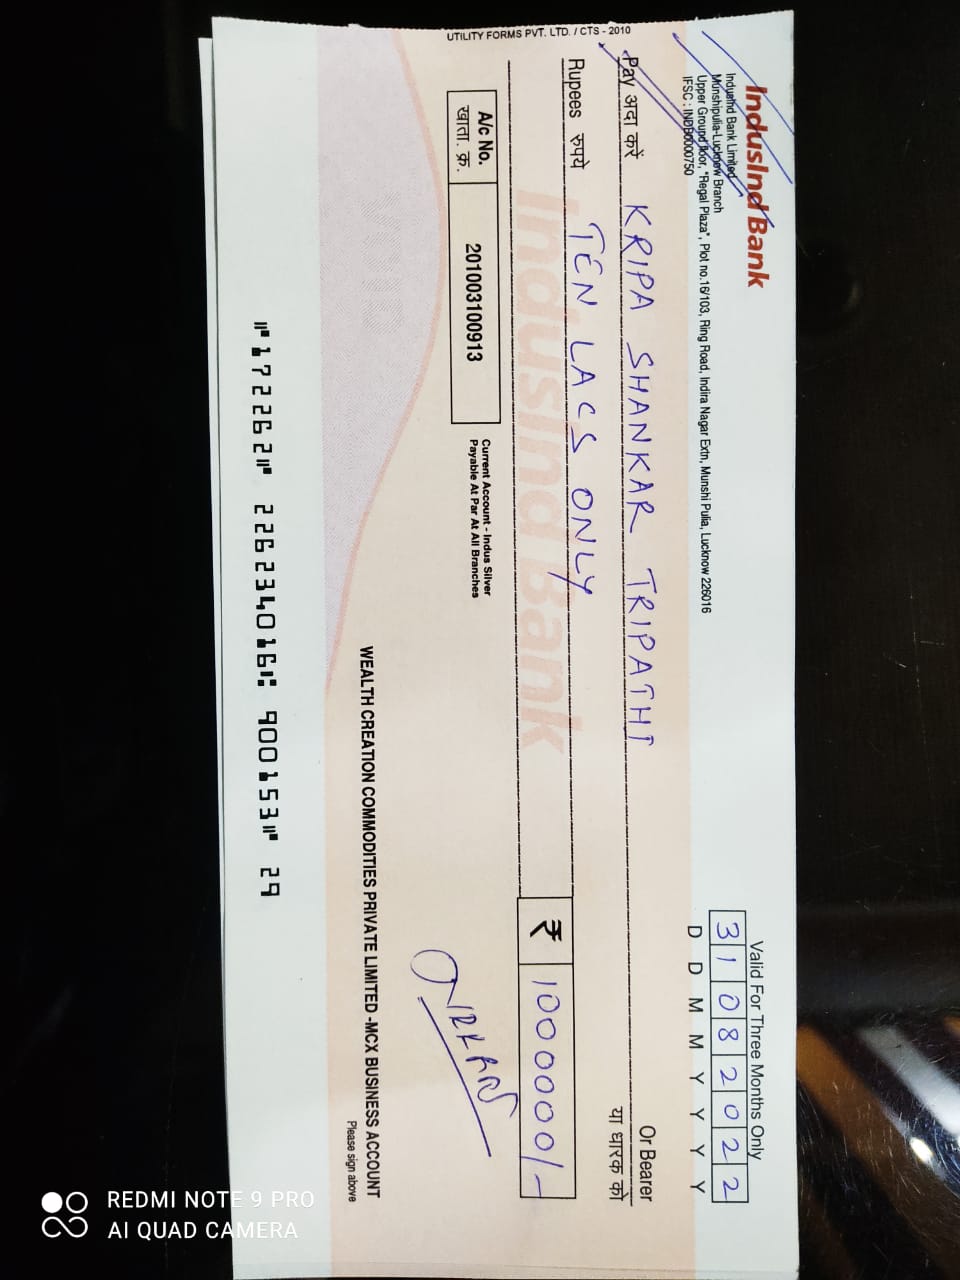 UTILITY FORMS PVT. LTD. / CTS - 2010
IndusInd Bank
IndusInd Bank Limited
Munshipulia-Lucknow Branch
Upper Ground floor, "Regal Plaza", Plot no.16/103, Ring Road, Indira Nagar Extn, Munshi Pulia, Lucknow 226016
IFSC : INDB0000750
Valid For Three Months Only
31082022
D D M M Y Y Y Y
Pay अदा करें KRIPA SHANKAR TRIPATHI
Or Bearer
या धारक को
Rupees रुपये TEN LACS ONLY
₹ 1000000/-
IndusInd Bank
A/c No.
खाता. क्र.
201003100913
Current Account - Indus Silver
Payable At Par At All Branches
WEALTH CREATION COMMODITIES PRIVATE LIMITED -MCX BUSINESS ACCOUNT
Please sign above
⑈172262⑈ 226234016⑆ 900153⑈ 29
REDMI NOTE 9 PRO
AI QUAD CAMERA